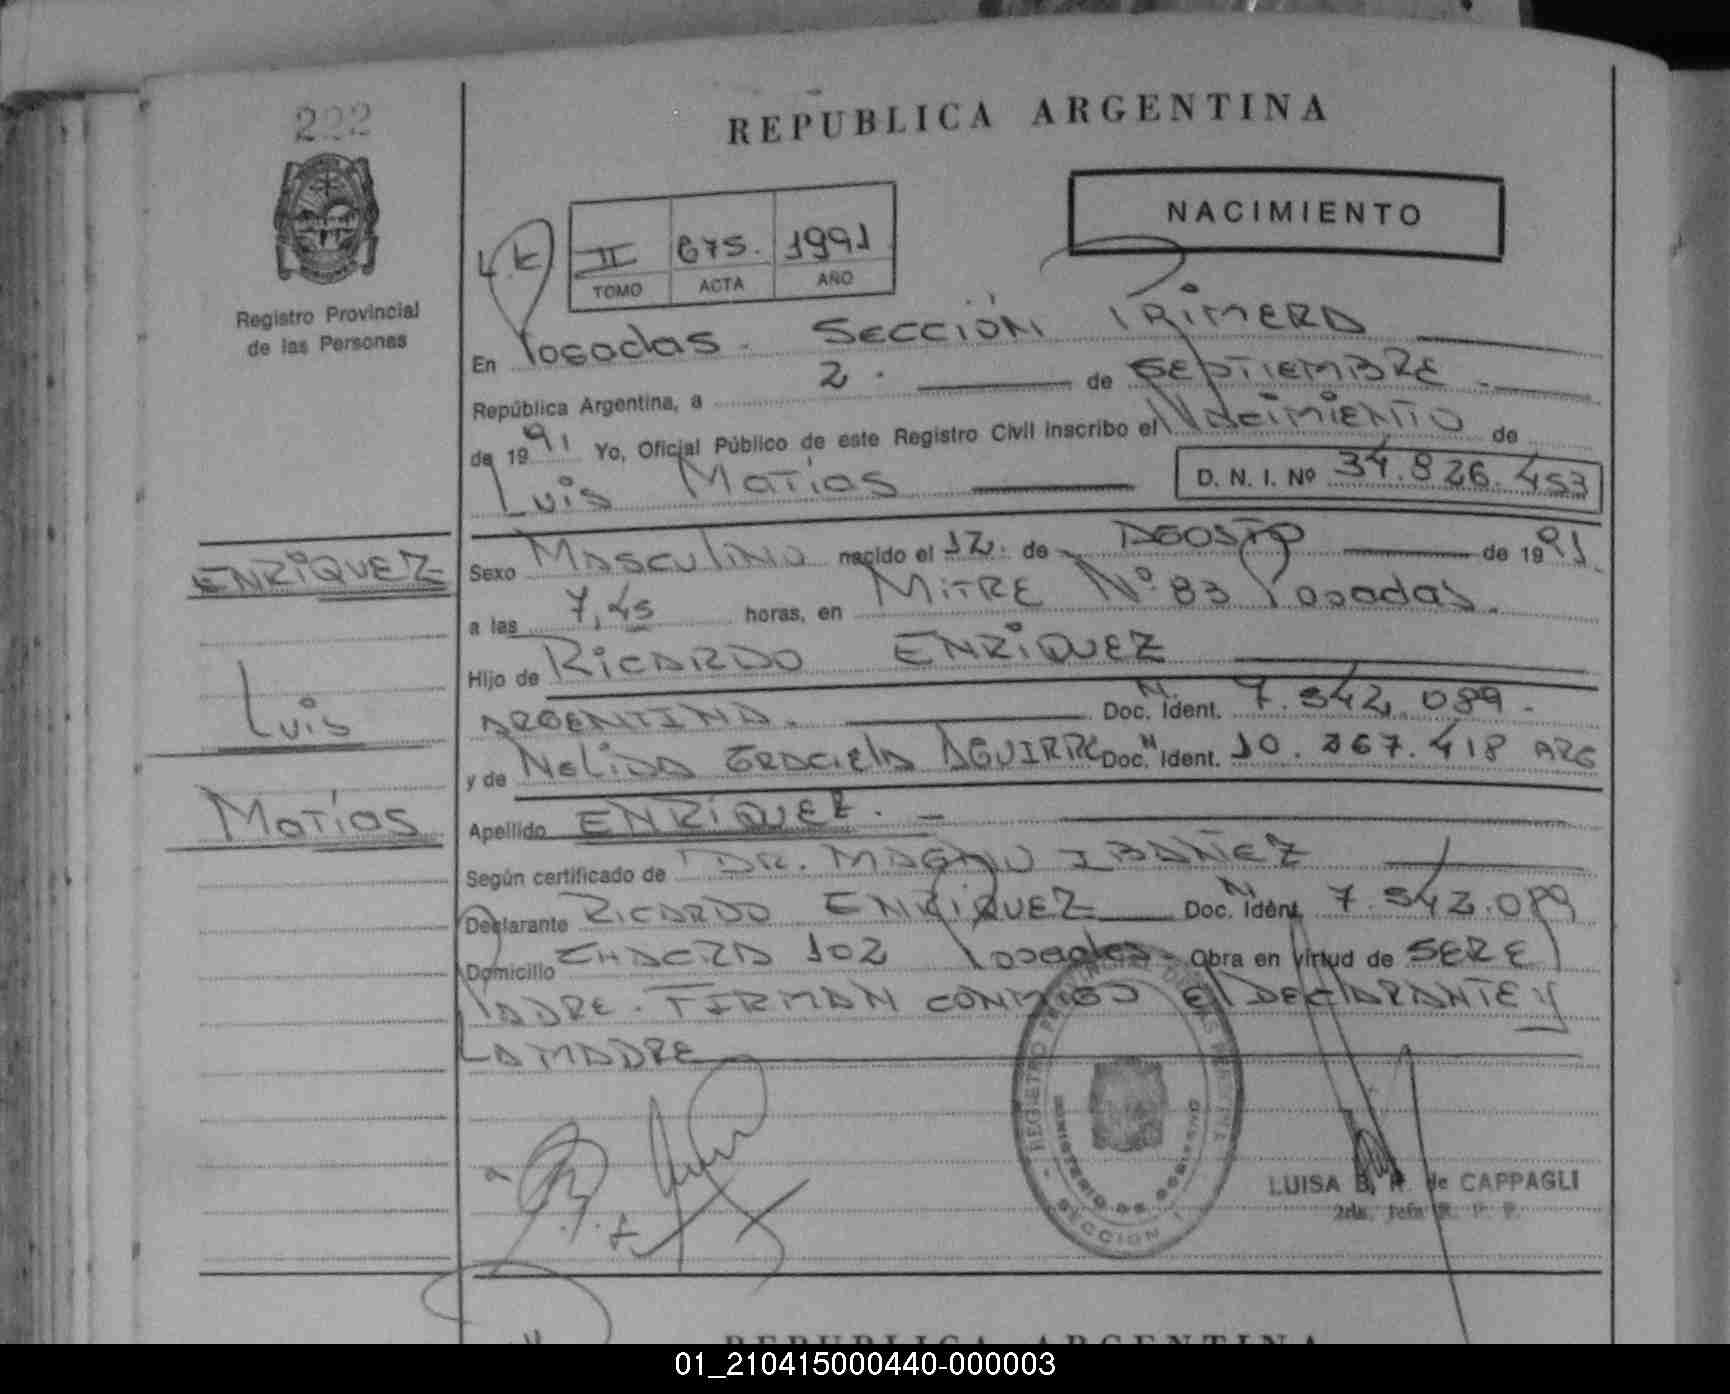 222
REPUBLICA ARGENTINA
NACIMIENTO
II 675. 1991
TOMO ACTA AÑO
Registro Provincial
de las Personas
En Posadas. SECCION PRIMERA
República Argentina, a 2. de SEPTIEMBRE
de 1991 Yo, Oficial Público de este Registro Civil inscribo el Nacimiento de
Luis Matías D. N. I. Nº 34.826.453
ENRIQUEZ
Luis
Matías
Sexo Masculino nacido el 12. de AGOSTO de 1991
a las 7,45 horas, en MITRE Nº 83 Posadas.
Hijo de RICARDO ENRIQUEZ
ARGENTINA. Doc. Ident. 7.542.089.
y de Nelida GRACIELA AGUIRRE Doc. Ident. 10.367.418 ARG
Apellido ENRIQUEZ.
Según certificado de DR. MAGNO IBAÑEZ
Declarante RICARDO ENRIQUEZ Doc. Ident. 7.542.089
Domicilio 102 Posadas Obra en virtud de SER El
PADRE. FIRMAN CONMIGO El DECLARANTE y
LA MADRE
REGISTRO PROVINCIAL DE LAS PERSONAS
MINISTERIO DE GOBIERNO
SECCION 1
LUISA B. R. de CAPPAGLI
2da. Jefa R. P. P.
REPUBLICA ARGENTINA
01_210415000440-000003